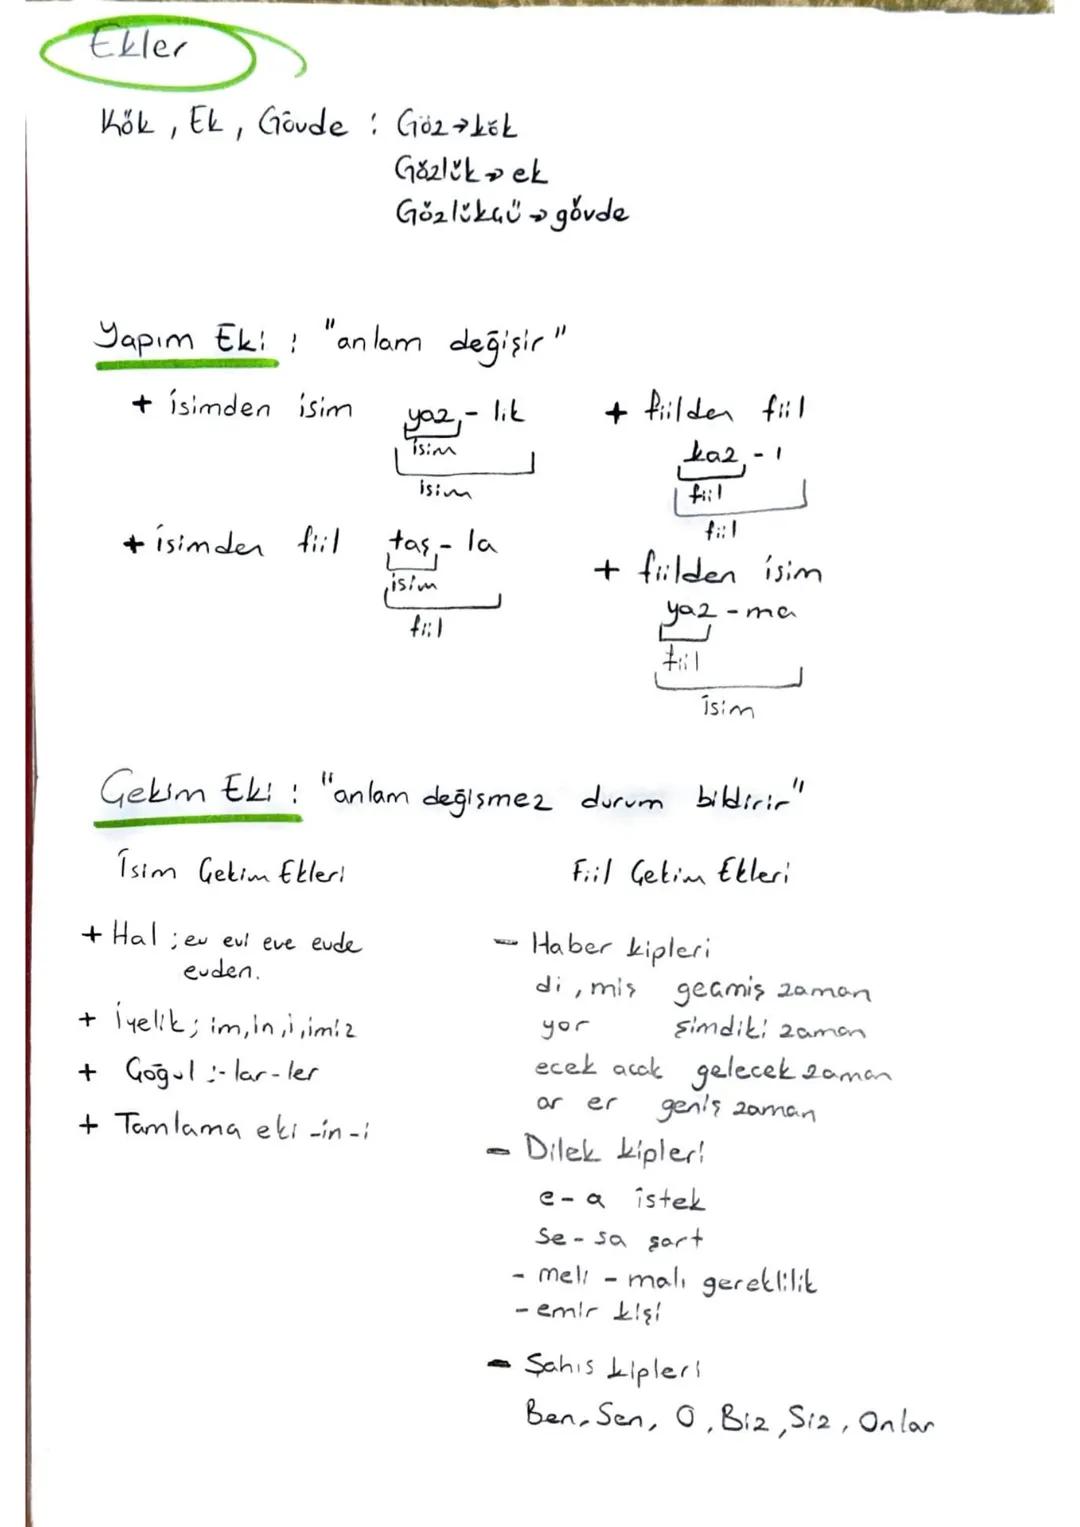 Ekler
Kök, Ek, Gövde : Göz→kök
Gözlük→ek
Gözlükçü→gövde
Yapım Eki : "anlam değişir"
+ isimden isim yaz - lık
isim
isim
+ isimden fiil taş - la
isim
fiil
+ fiilden fiil
kaz - ı
fiil
fiil
+ fiilden isim
yaz - ma
fiil
isim
Çekim Eki : "anlam değişmez durum bildirir"
İsim Çekim Ekleri
+ Hal ; ev evi eve evde
evden.
+ İyelik ; im, in, i, imiz
+ Çoğul :- lar - ler
+ Tamlama eki -in -i
Fiil Çekim Ekleri
- Haber kipleri
di, miş geçmiş zaman
yor şimdiki zaman
ecek acak gelecek zaman
ar er geniş zaman
- Dilek kipleri
e - a istek
se - sa şart
- meli - malı gereklilik
- emir kişi
- Şahıs kipleri
Ben, Sen, O, Biz, Siz, Onlar